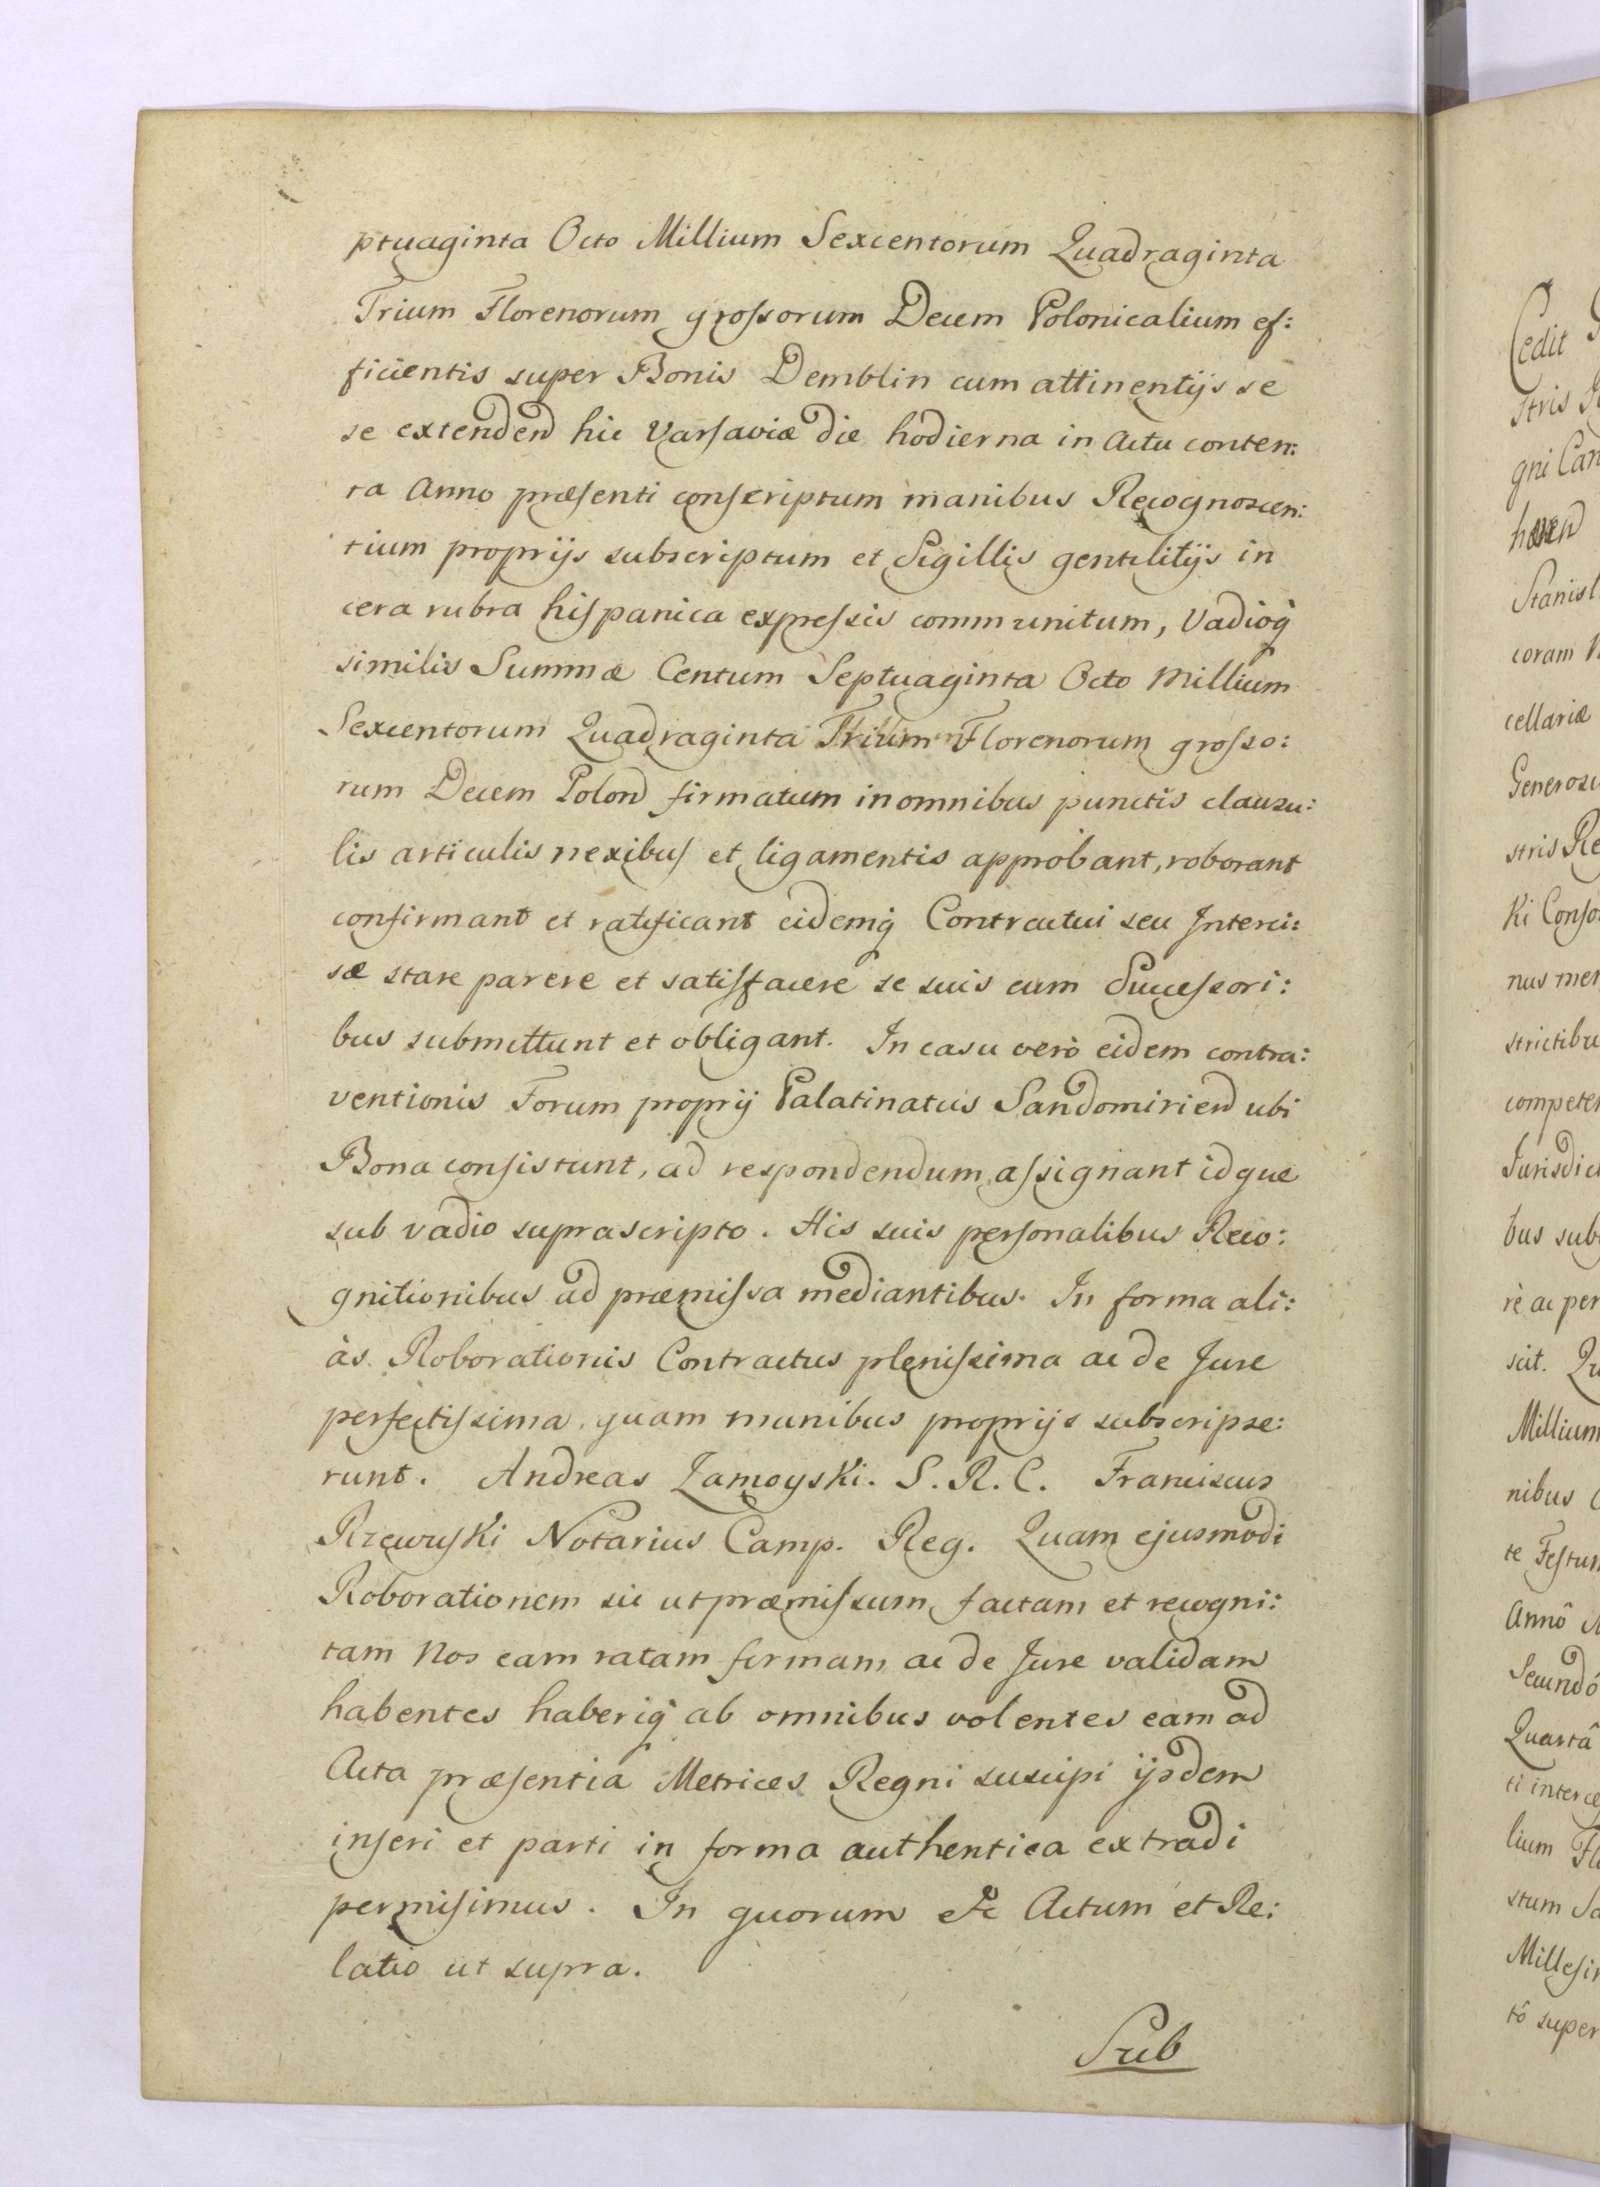 ptuaginta Octo Millium Sexcentorum Quadraginta
Trium Florenorum grossorum Decem Polonicalium ef:
ficientis super Bonis Demblin cum attinentijs se
se extenden hic Varsaviæ die hodierna in Actu conten:
ta Anno præsenti conscriptum manibus Recognoscen:
tium proprijs subscriptum et Sigillis gentilitijs in
cera rubra hispanica expressis communitum, Vadioq
similis Summæ Centum Septuaginta Octo Millium
Sexcentorum Quadraginta Trium Florenorum grosso:
rum Decem Polon firmatum in omnibus punctis clausu:
lis articulis nexibus et ligamentis approbant, roborant
confirmant et ratificant eidemq Contractui seu Interci:
sæ stare parere et satisfacere se suis cum Successori:
bus submittunt et obligant. In casu verò eidem contra:
ventionis Forum proprij Palatinatus Sandomirien ubi
Bona consistunt, ad respondendum assignant idque
sub vadio suprascripto. His suis personalibus Reco:
gnitionibus ad præmissa mediantibus. In forma ali:
às Roborationis Contractus plenissima ac de Jure
perfectissima, quam manibus proprijs subscripse:
runt. Andreas Zamoyski. S. R. C. Franciscus
Rzewuski Notarius Camp. Reg. Quam ejusmodi
Roborationem sic ut præmissum factam et recogni:
tam Nos eam ratam firmam ac de Jure validam
habentes haberiq ab omnibus volentes eam ad
Acta præsentia Metrices Regni suscipi ijsdem
inseri et parti in forma authentica extradi
permisimus. In quorum &c Actum et Re:
latio ut supra.
Sub
Cedit
stris
gni Can
Stanisl
coram
cellariæ
Generosu
stris Re
ki Conso
nus men
strictibu
competen
Jurisdic
bus sub
rè ac per
scit. Qu
Millium
nibus
te Festum
Annô
Secundô
Quartâ
ti interce
lium Fl
stum
Millesi
tô super